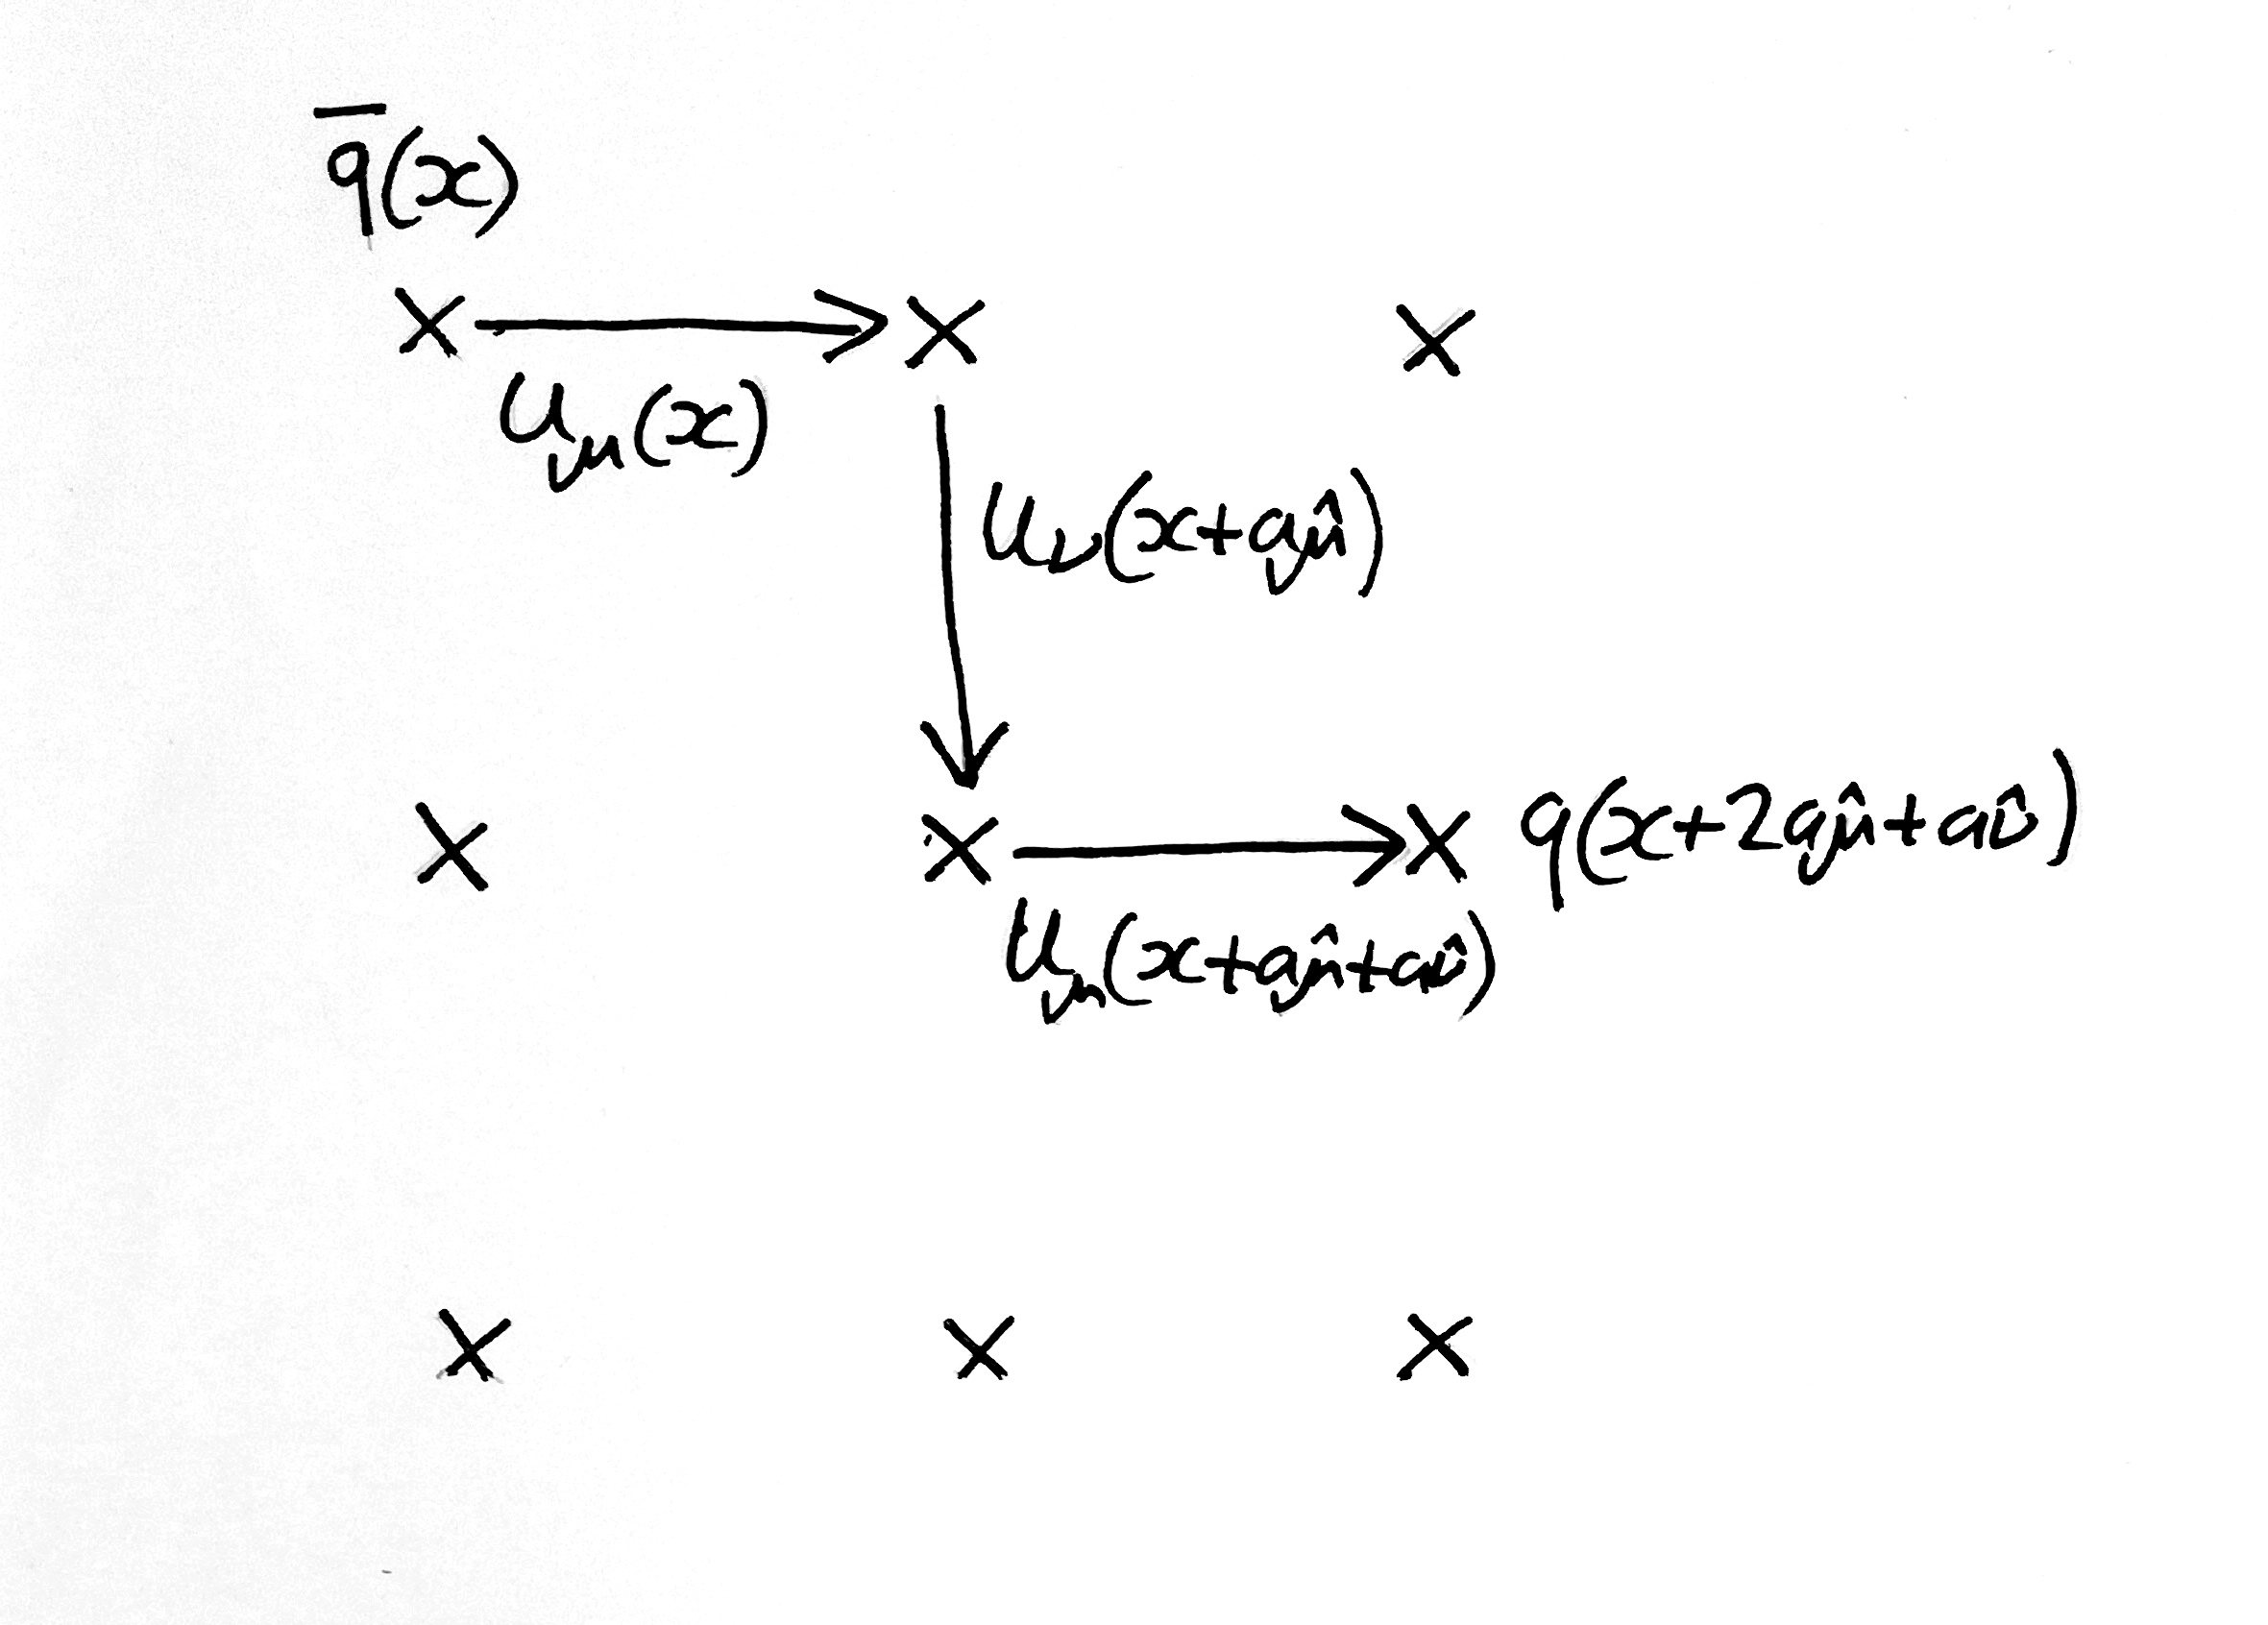 q̅(x)
U_μ(x)
U_ν(x+aμ̂)
q(x+2aμ̂+aν̂)
U_μ(x+aμ̂+aν̂)